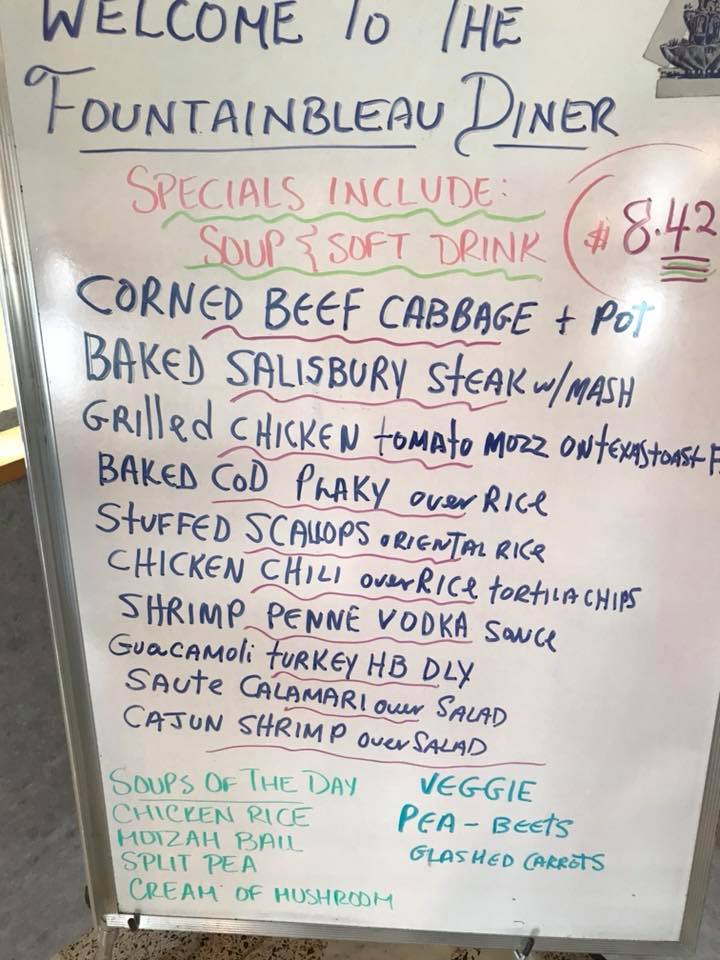 WELCOME TO THE
FOUNTAINBLEAU DINER
SPECIALS INCLUDE:
SOUP & SOFT DRINK
$8.42
CORNED BEEF CABBAGE + POT
BAKED SALISBURY STEAK w/MASH
GRilled CHICKEN tOMAtO MOZZ ON tEXAS tOASt F
BAKED COD PHAKY over RICE
STUFFED SCALLOPS ORIENTAL RICE
CHICKEN CHILI over RICE tORTILA CHIPS
SHRIMP PENNE VODKA SAUCE
GUACAMOli tURKEY HB DLX
SAUTE CALAMARI over SALAD
CAJUN SHRIMP over SALAD
SOUPS OF THE DAY
CHICKEN RICE
MOTZAH BALL
SPLIT PEA
CREAM OF MUSHROOM
VEGGIE
PEA - BEETS
GLASHED CARROTS